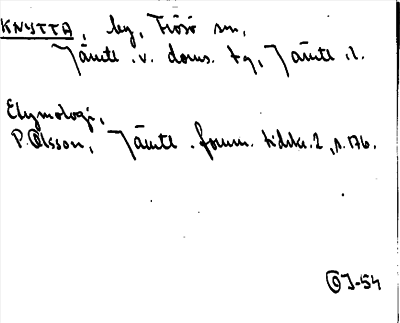 KNYTTA, by, Frösö sn,
Jämtl. v. doms. tg, Jämtl. l.
Etymologi,
P. Olsson, Jämtl. fornm. tidskr. 2, s. 176.
OJ-54